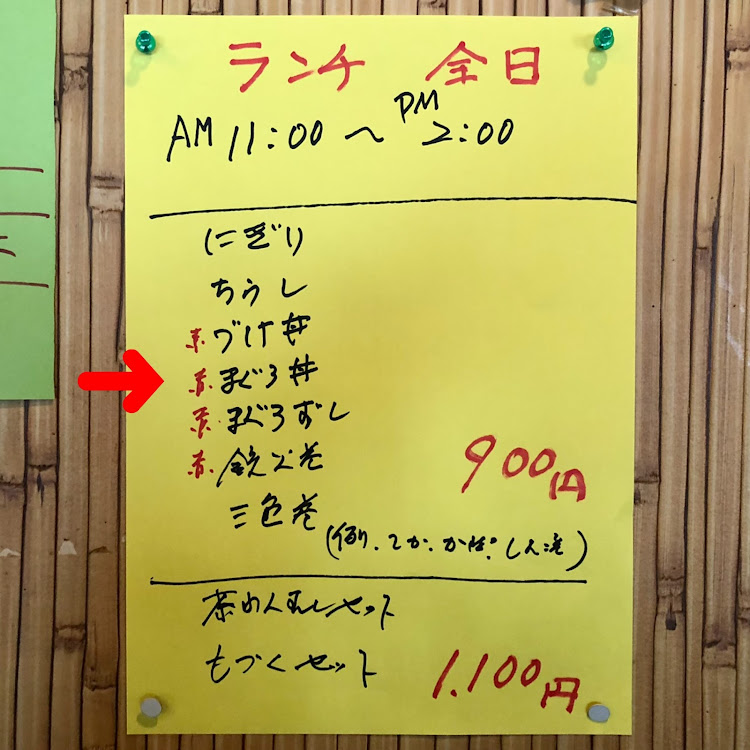 ランチ 全日
AM 11:00 〜 PM 2:00
にぎり
ちらし
赤. づけ丼
赤. まぐろ丼
赤. まぐろずし
赤. 鉄火巻 900円
三色巻
てか.
茶わんむしセット
もづくセット 1.100円